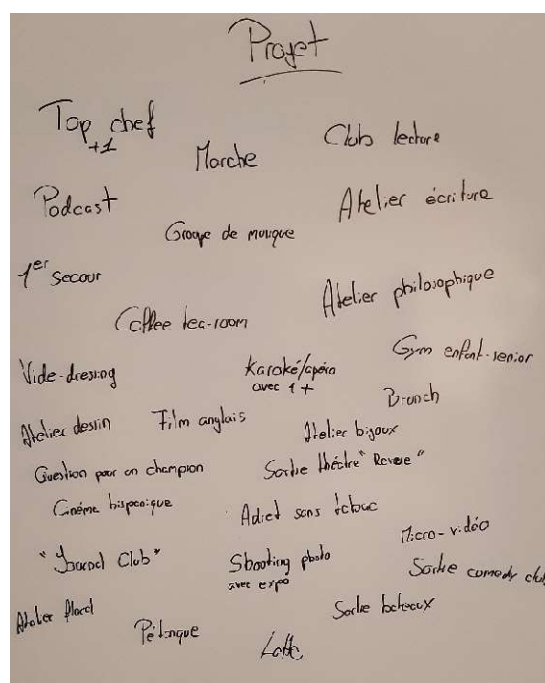 Projet
Top chef
+1
Marche
Club lecture
Podcast
Atelier écriture
Groupe de musique
1er secour
Atelier philosophique
Coffee tea-room
Gym enfant-senior
Vide-dressing
Karaké/apéro
avec 1 +
Brunch
Atelier dessin
Film anglais
Atelier bijoux
Question pour un champion
Sortie théâtre "Revue"
Cinéma hispanique
sans tabac
Micro-vidéo
"Journal Club"
Shooting photo
avec expo
Sortie comedy club
Atelier floral
Pétanque
Sortie bateaux